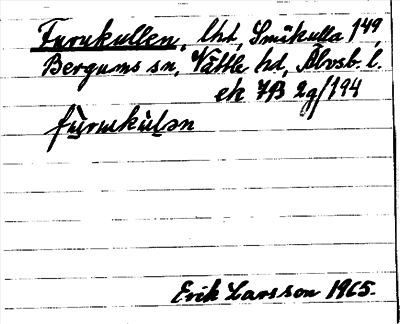 Furukullen, lht, Småkulla 1⁴⁹,
Bergums sn, Vättle hd, Älvsb. l.
ek 7B 2g/194
Erik Larsson 1965.